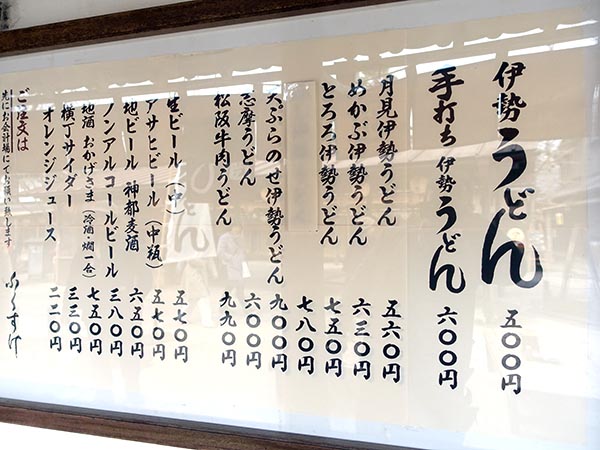 伊勢うどん 五〇〇円
手打ち伊勢うどん 六〇〇円
月見伊勢うどん 五六〇円
めかぶ伊勢うどん 六三〇円
とろろ伊勢うどん 七五〇円
七八〇円
天ぷらのせ伊勢うどん 九〇〇円
志摩うどん 六〇〇円
松阪牛肉うどん 九九〇円
生ビール（中） 五七〇円
アサヒビール（中瓶） 五七〇円
地ビール 神都麦酒 六五〇円
ノンアルコールビール 三八〇円
地酒 おかげさま（冷酒・燗一合） 七五〇円
横丁サイダー 三三〇円
オレンジジュース 二二〇円
ご注文は
先にお会計場にてお願い致します
ふくすけ